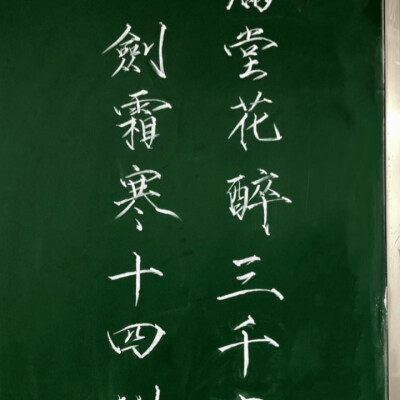 堂花醉三千
劍霜寒十四